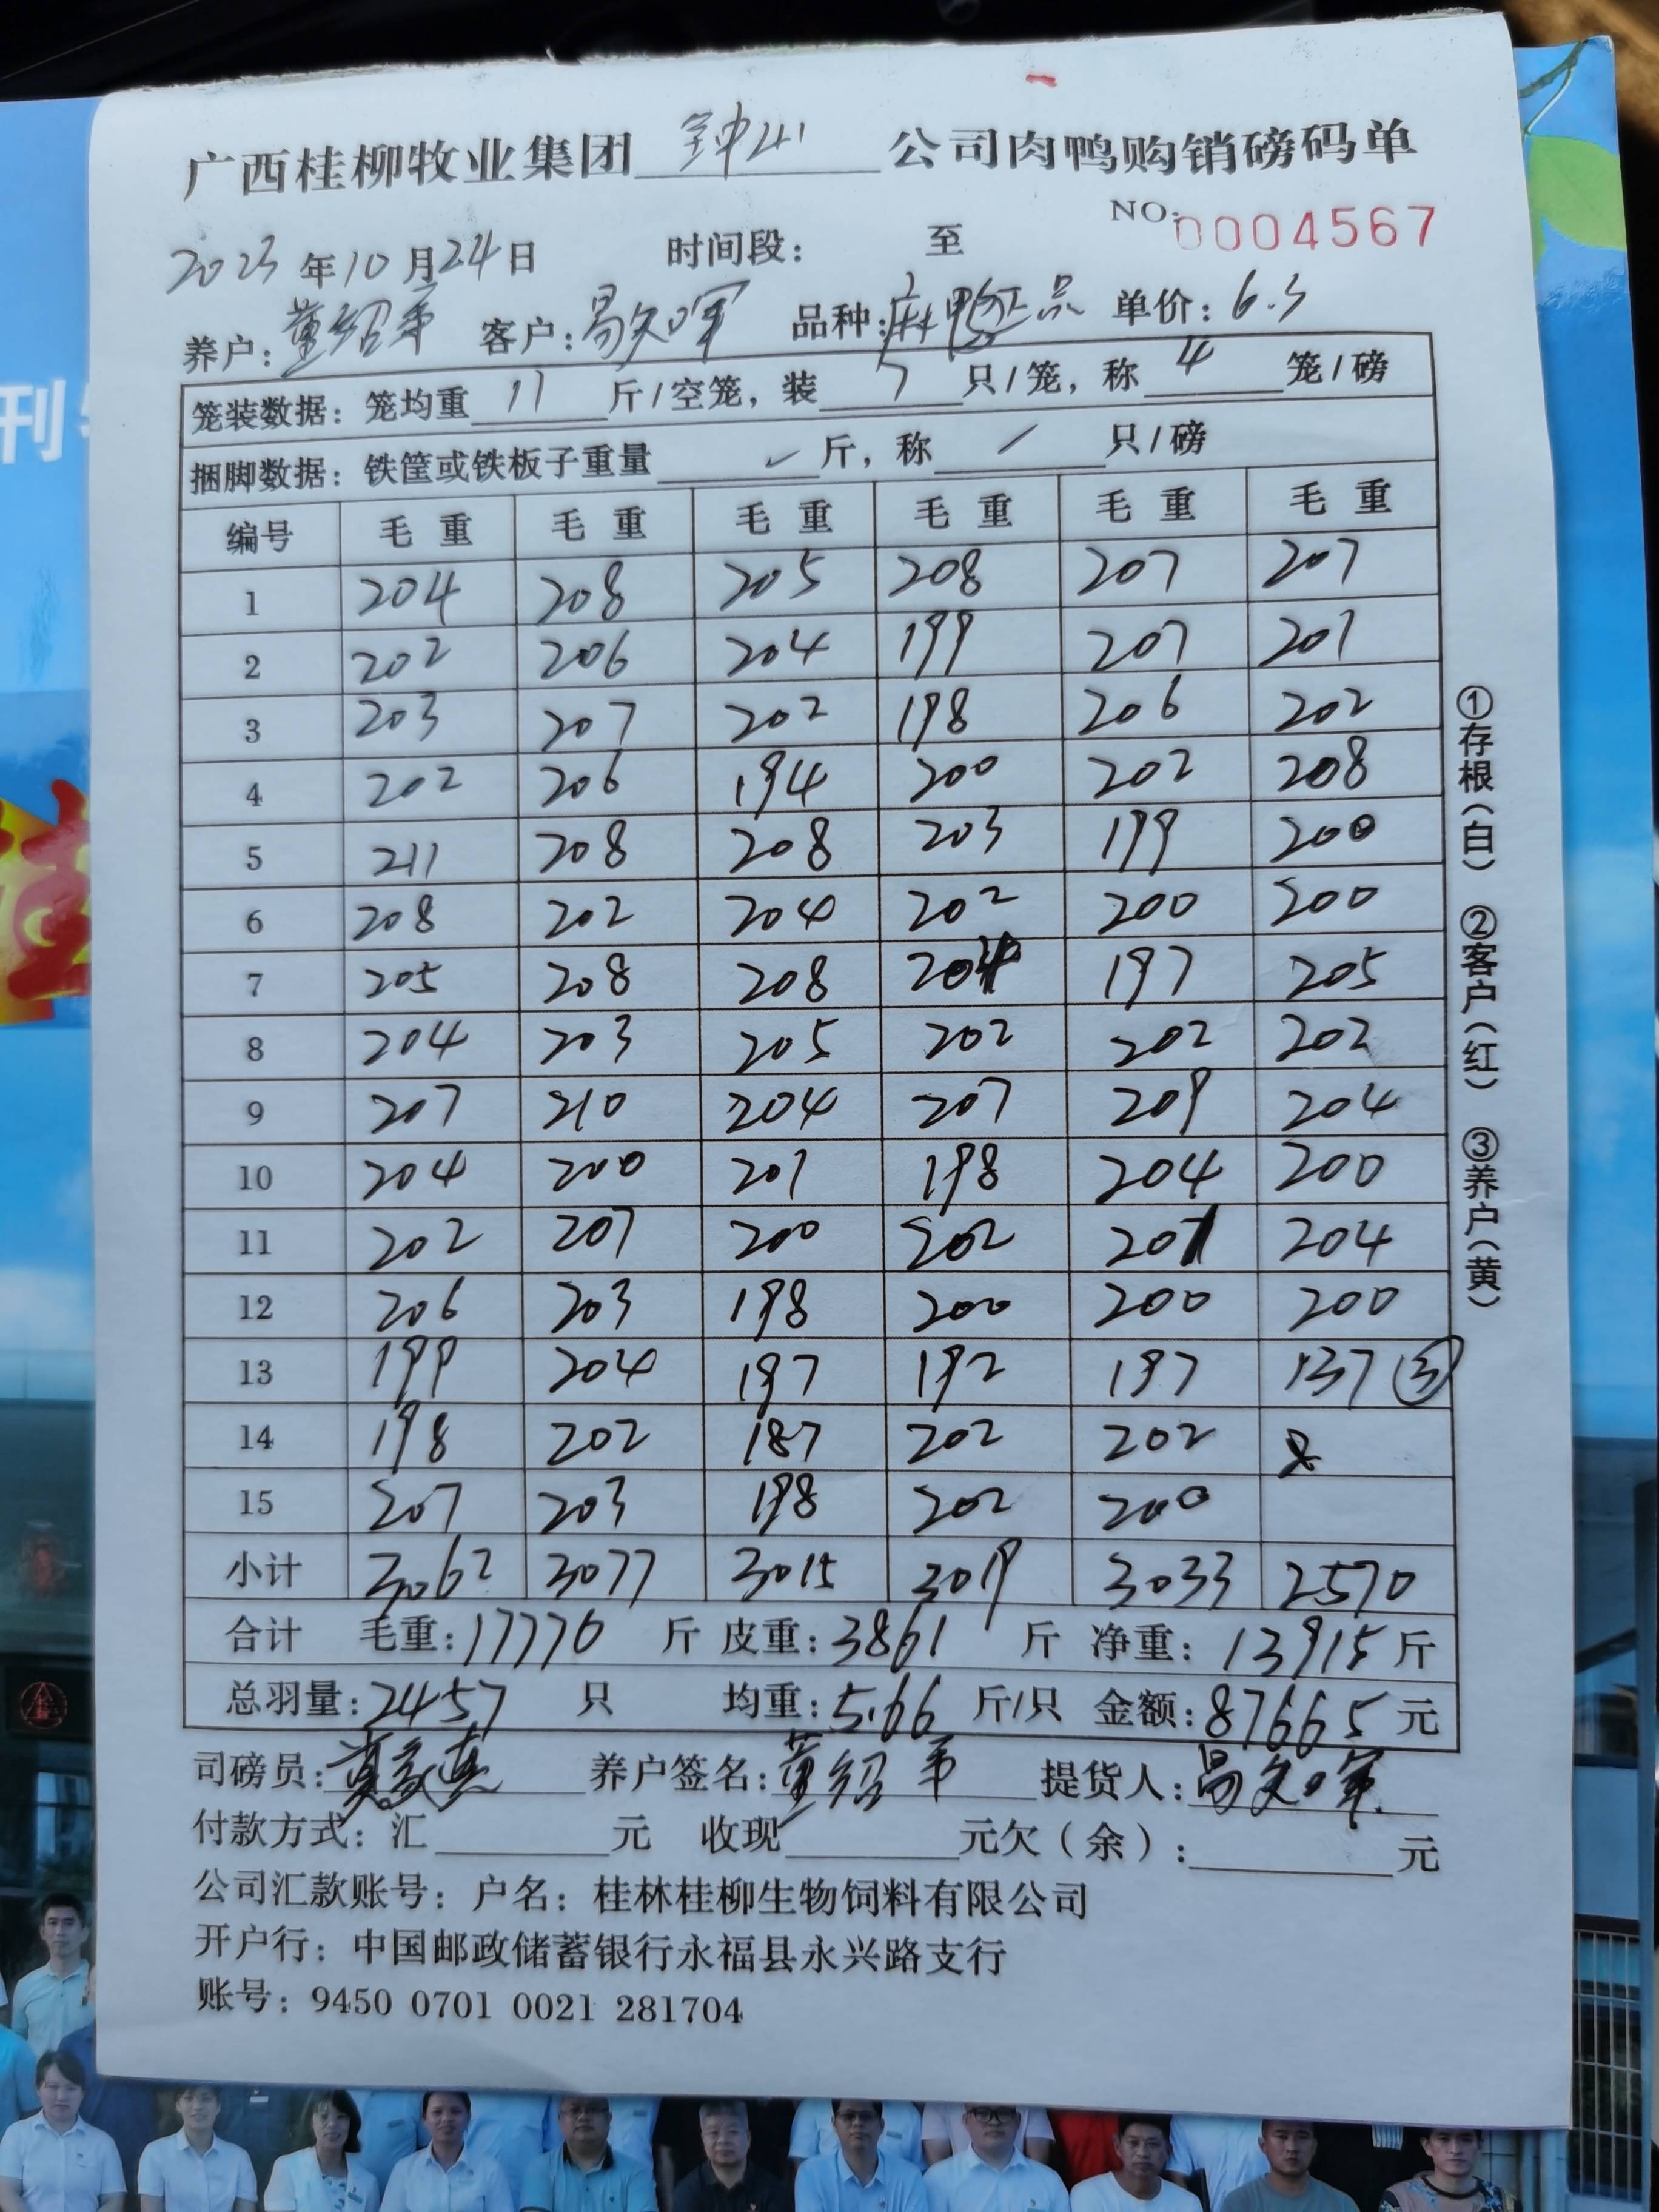 广西桂柳牧业集团 钟山 公司肉鸭购销磅码单
NO:0004567
2023年10月24日 时间段: 至
养户:董绍军 客户:易文军 品种:麻鸭正品 单价:6.3
笼装数据:笼均重 11 斤/空笼,装 7 只/笼,称 4 笼/磅
捆脚数据:铁筐或铁板子重量 斤,称 / 只/磅
编号 毛重 毛重 毛重 毛重 毛重 毛重
1 204 208 205 208 207 207
2 202 206 204 199 207 201
3 203 207 202 198 206 202
4 202 206 194 200 202 208
5 211 208 208 203 199 200
6 208 202 204 202 200 200
7 205 208 208 204 197 205
8 204 203 205 202 202 202
9 207 210 204 207 209 204
10 204 200 201 198 204 200
11 202 207 200 202 201 204
12 206 203 198 200 200 200
13 199 204 197 192 197 137 ③
14 198 202 187 202 202 8
15 207 203 198 202 200
小计 3062 3077 3015 3019 3033 2570
合计 毛重:17776 斤 皮重:3861 斤 净重:13915斤
总羽量:2457 只 均重:5.66 斤/只 金额:87665元
司磅员: 养户签名:董绍军 提货人:易文军
付款方式:汇 元 收现 元欠(余): 元
公司汇款账号:户名:桂林桂柳生物饲料有限公司
开户行:中国邮政储蓄银行永福县永兴路支行
账号:9450 0701 0021 281704
①存根(白) ②客户(红) ③养户(黄)
刊